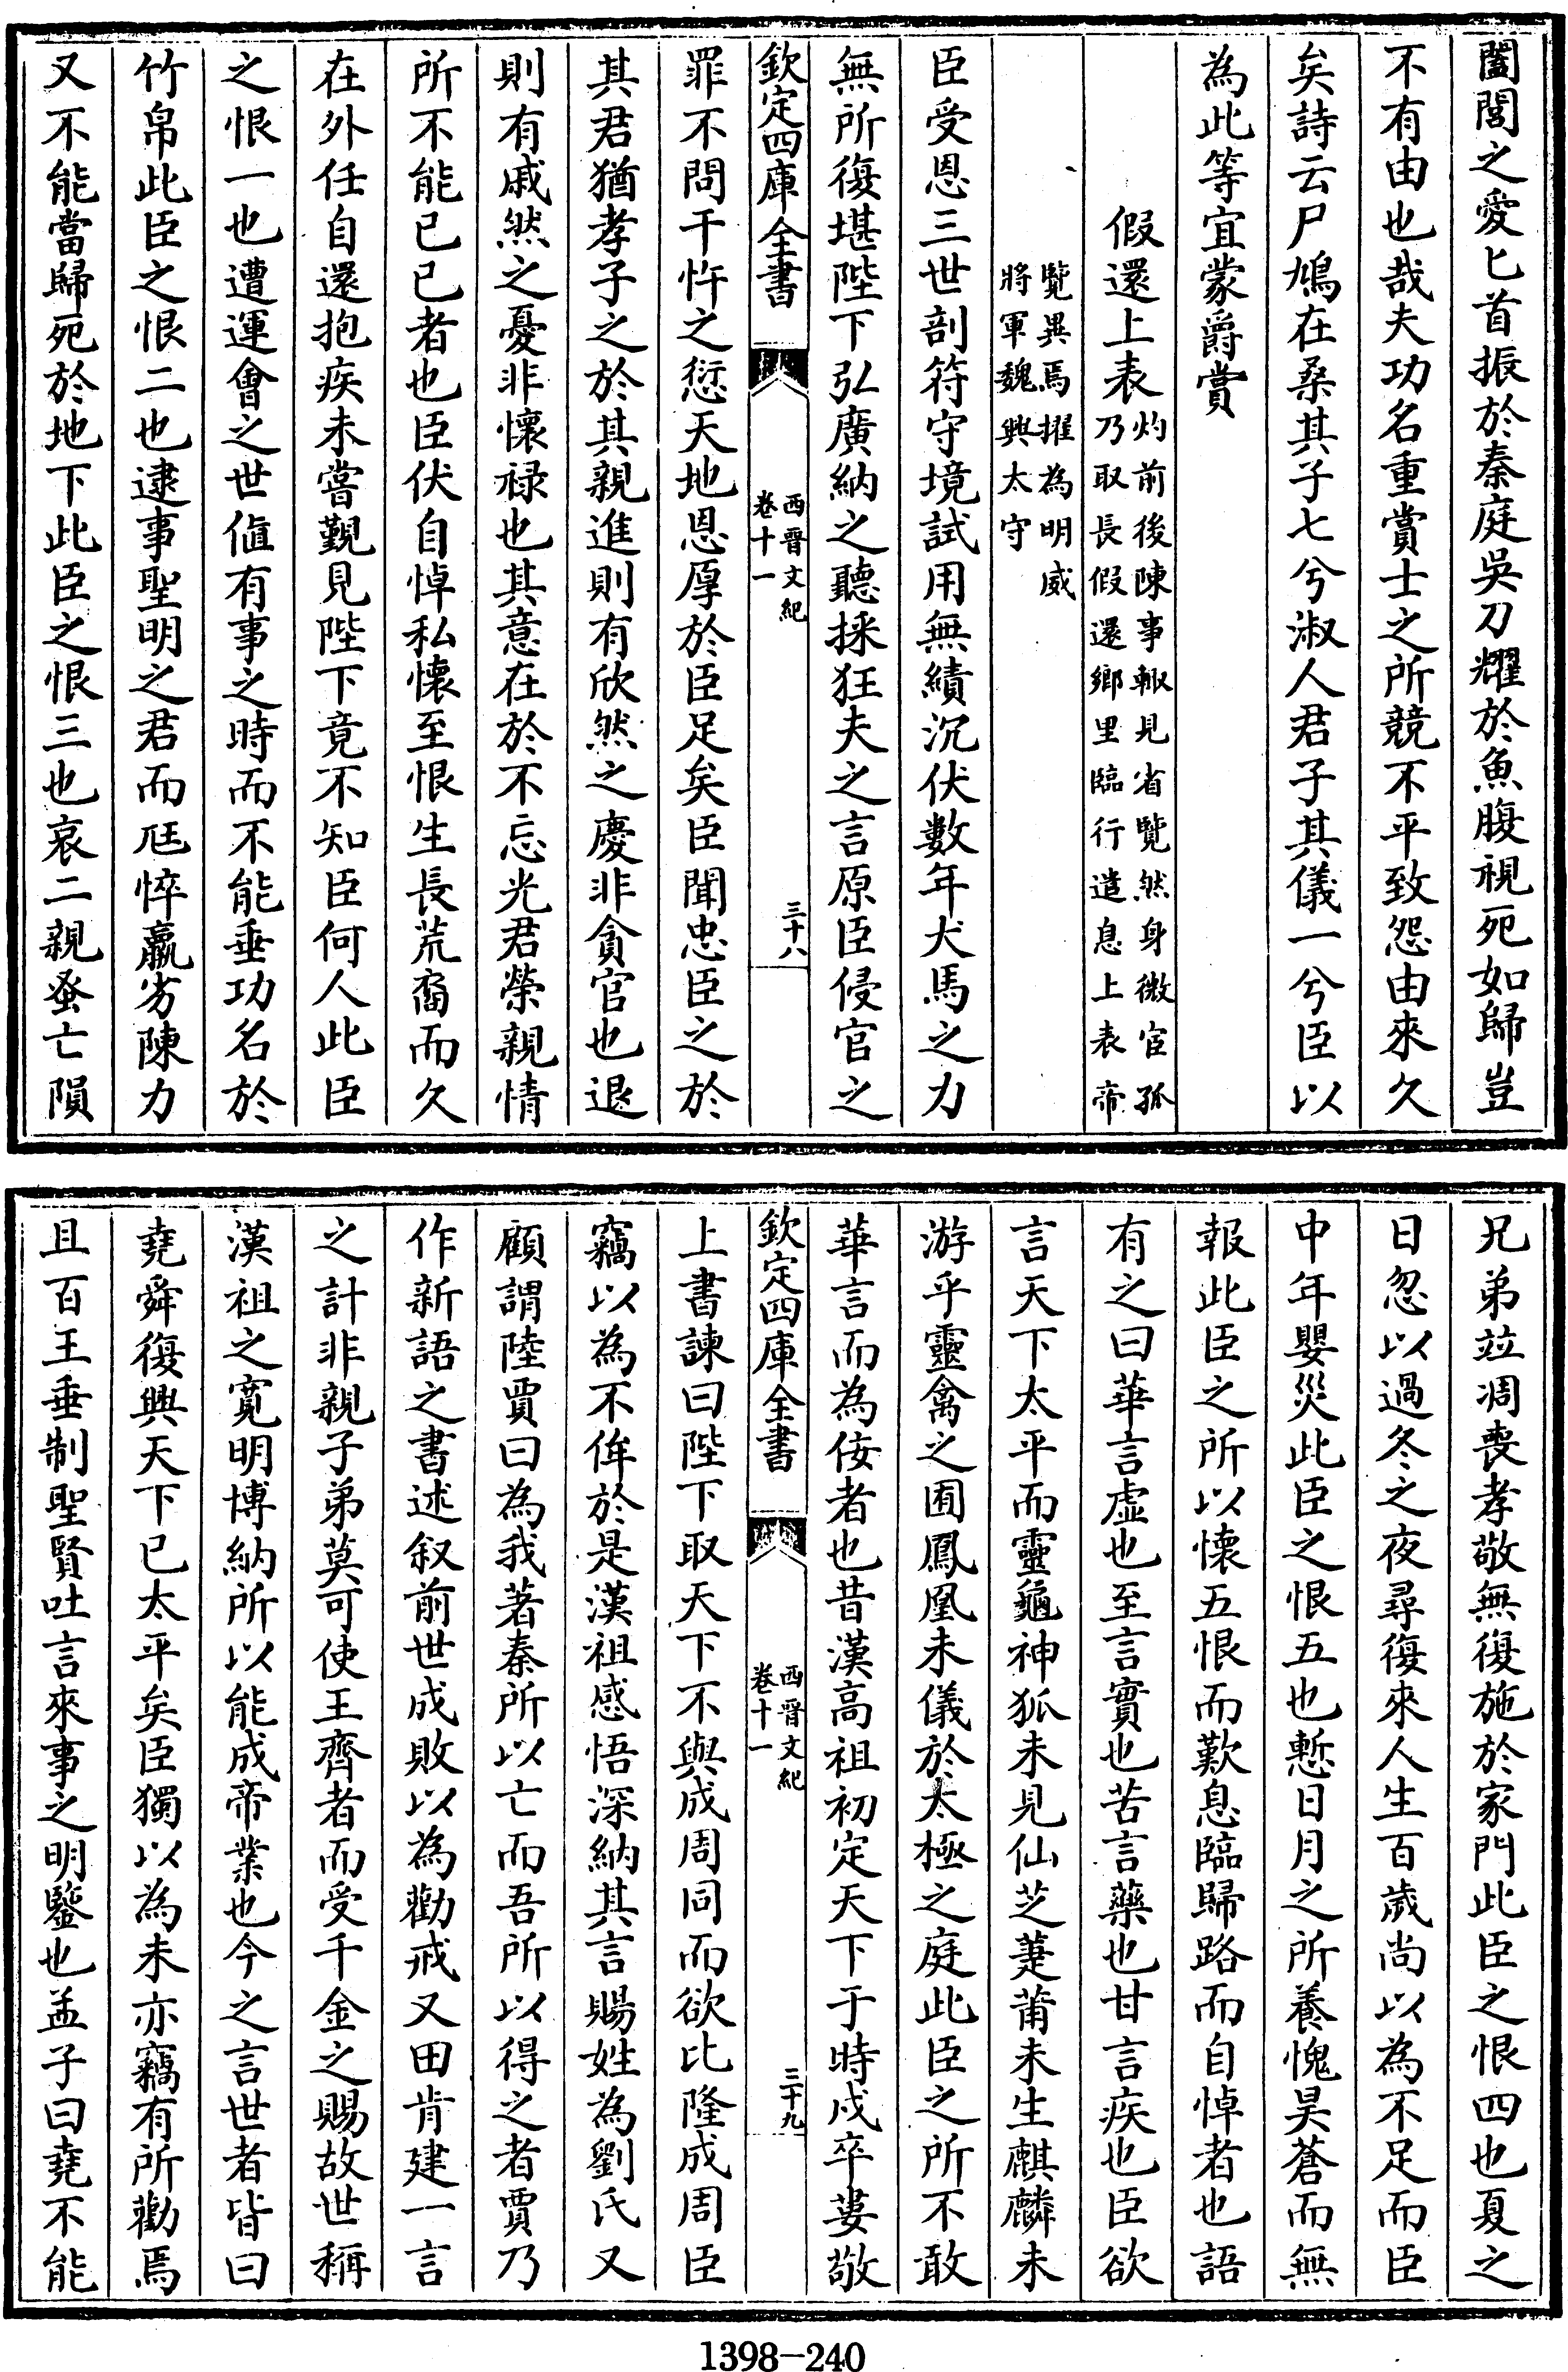 闔閭之愛匕首振於秦庭吳刀耀於魚腹視死如歸豈
不有由也哉夫功名重賞士之所競不平致怨由來久
矣詩云尸鳩在桑其子七兮淑人君子其儀一兮臣以
為此等宜蒙爵賞
假還上表
灼前後陳事輙見省覽然身微宦孤
乃取長假還鄉里臨行遣息上表帝
覽異焉擢為明威
將軍魏興太守
臣受恩三世剖符守境試用無績沉伏數年犬馬之力
無所復堪陛下弘廣納之聽採狂夫之言原臣侵官之
欽定四庫全書
西晉文紀
卷十一
三十八
罪不問干忤之愆天地恩厚於臣足矣臣聞忠臣之於
其君猶孝子之於其親進則有欣然之慶非貪官也退
則有戚然之憂非懷祿也其意在於不忘光君榮親情
所不能已已者也臣伏自悼私懷至恨生長荒裔而久
在外任自還抱疾未嘗覲見陛下竟不知臣何人此臣
之恨一也遭運會之世值有事之時而不能垂功名於
竹帛此臣之恨二也逮事聖明之君而尫悴羸劣陳力
又不能當歸死於地下此臣之恨三也哀二親蚤亡隕
兄弟竝凋喪孝敬無復施於家門此臣之恨四也夏之
日忽以過冬之夜尋復來人生百歲尚以為不足而臣
中年嬰災此臣之恨五也慙日月之所養愧昊蒼而無
報此臣之所以懷五恨而歎息臨歸路而自悼者也語
有之曰華言虛也至言實也苦言藥也甘言疾也臣欲
言天下太平而靈龜神狐未見仙芝萐莆未生麒麟未
游乎靈禽之囿鳳凰未儀於太極之庭此臣之所不敢
華言而為佞者也昔漢高祖初定天下于時戍卒婁敬
欽定四庫全書
西晉文紀
卷十一
三十九
上書諫曰陛下取天下不與成周同而欲比隆成周臣
竊以為不侔於是漢祖感悟深納其言賜姓為劉氏又
顧謂陸賈曰為我著秦所以亡而吾所以得之者賈乃
作新語之書述叙前世成敗以為勸戒又田肯建一言
之計非親子弟莫可使王齊者而受千金之賜故世稱
漢祖之寬明博納所以能成帝業也今之言世者皆曰
堯舜復興天下已太平矣臣獨以為未亦竊有所勸焉
且百王垂制聖賢吐言來事之明鑒也孟子曰堯不能
1398-240